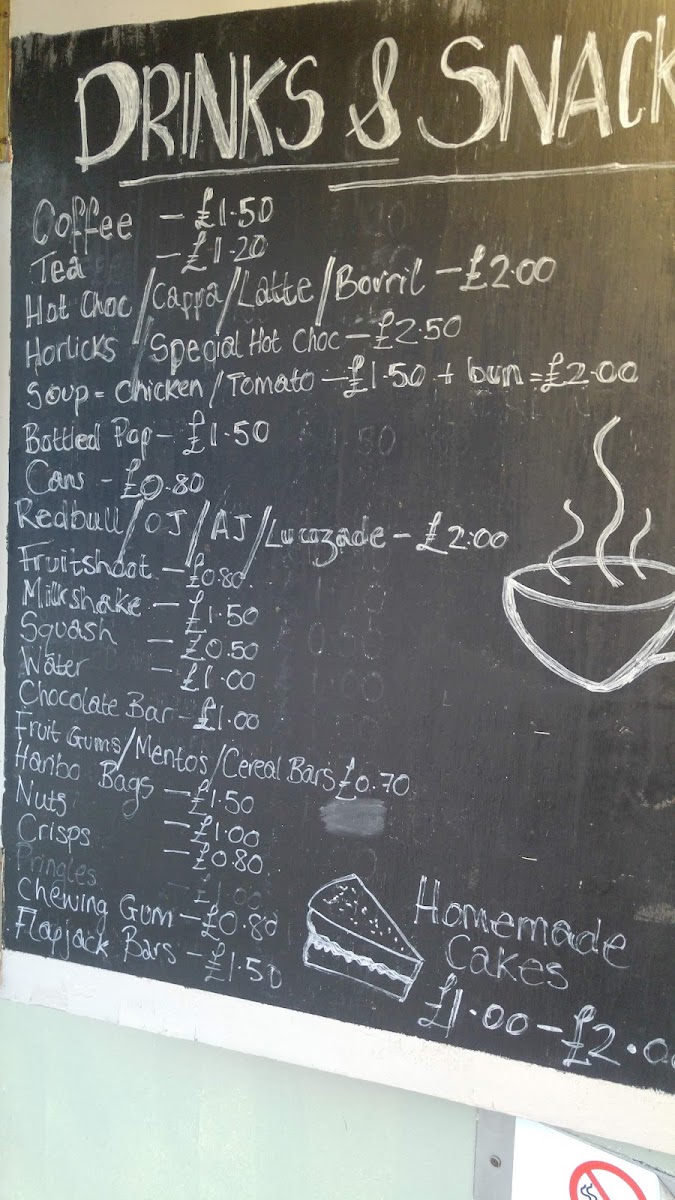 DRINKS & SNACK
Coffee - £1.50
Tea - £1.20
Hot Choc/Cappa/Latte/Bovril - £2.00
Horlicks/Special Hot Choc - £2.50
Soup = Chicken/Tomato - £1.50 + bun = £2.00
Bottled Pop - £1.50
Cans - £0.80
Redbull/OJ/AJ/Lucozade - £2.00
Fruitshoot - £0.80
Milkshake - £1.50
Squash - £0.50
Water - £1.00
Chocolate Bar - £1.00
Fruit Gums/Mentos/Cereal Bars £0.70
Haribo Bags - £1.50
Nuts - £1.00
Crisps - £0.80
Pringles - £1.00
Chewing Gum - £0.80
Flapjack Bars - £1.50
Homemade
Cakes
£1.00 - £2.00